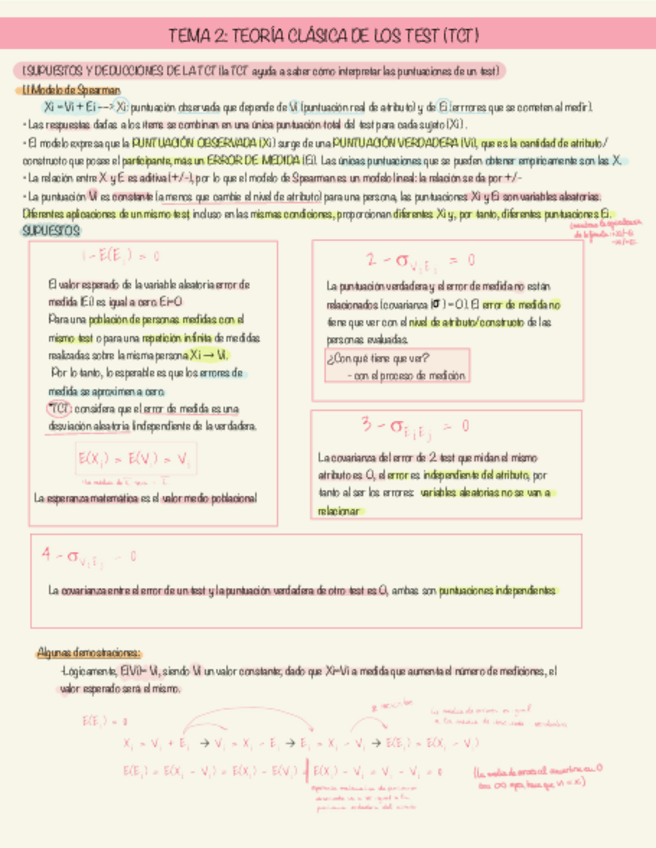 TEMA 2: TEORÍA CLÁSICA DE LOS TEST (TCT)
1.SUPUESTOS Y DEDUCCIONES DE LA TCT (la TCT ayuda a saber cómo interpretar las puntuaciones de un test)
1.1 Modelo de Spearman
Xi = Vi + Ei --> Xi: puntuación observada que depende de Vi (puntuación real de atributo) y de Ei (errores que se cometen al medir).
- Las respuestas dadas a los ítems se combinan en una única puntuación total del test para cada sujeto (Xi).
- El modelo expresa que la PUNTUACIÓN OBSERVADA (Xi) surge de una PUNTUACIÓN VERDADERA (Vi), que es la cantidad de atributo/
constructo que posee el participante, más un ERROR DE MEDIDA (Ei). Las únicas puntuaciones que se pueden obtener empíricamente son las X.
- La relación entre X y E es aditiva (+/-), por lo que el modelo de Spearman es un modelo lineal: la relación se da por +/-
- La puntuación Vi es constante (a menos que cambie el nivel de atributo) para una persona, las puntuaciones Xi y Ei son variables aleatorias.
Diferentes aplicaciones de un mismo test, incluso en las mismas condiciones, proporcionan diferentes Xi y, por tanto, diferentes puntuaciones Ei.
SUPUESTOS
1 - E(Ei) = 0
El valor esperado de la variable aleatoria error de
medida (Ei) es igual a cero. Ei=0
Para una población de personas medidas con el
mismo test o para una repetición infinita de medidas
realizadas sobre la misma persona Xi → Vi.
Por lo tanto, lo esperable es que los errores de
medida se aproximen a cero
*TCT: considera que el error de medida es una
desviación aleatoria (independiente de la verdadera.
E(Xi) = E(Vi) = Vi
La esperanza matemática es el valor medio poblacional
2 - σViEi = 0
La puntuación verdadera y el error de medida no están
relacionados (covarianza (σ) = 0). El error de medida no
tiene que ver con el nivel de atributo/constructo de las
personas evaluadas.
¿Con qué tiene que ver?
- con el proceso de medición
3 - σEiEj = 0
La covarianza del error de 2 test que midan el mismo
atributo es 0, el error es independiente del atributo, por
tanto al ser los errores variables aleatorias no se van a
relacionar
4 - σViEj = 0
La covarianza entre el error de un test y la puntuación verdadera de otro test es 0, ambas son puntuaciones independientes
Algunas demostraciones:
-Lógicamente, E(Vi)= Vi, siendo Vi un valor constante; dado que Xi=Vi a medida que aumenta el número de mediciones, el
valor esperado será el mismo.
E(Ei) = 0
Xi = Vi + Ei → Vi = Xi - Ei → Ei = Xi - Vi → E(Ei) = E(Xi - Vi)
E(Ei) = E(Xi - Vi) = E(Xi) - E(Vi) = E(Xi) - Vi = Vi - Vi = 0